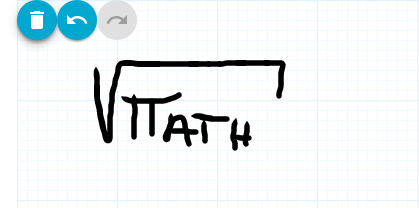 √πATH